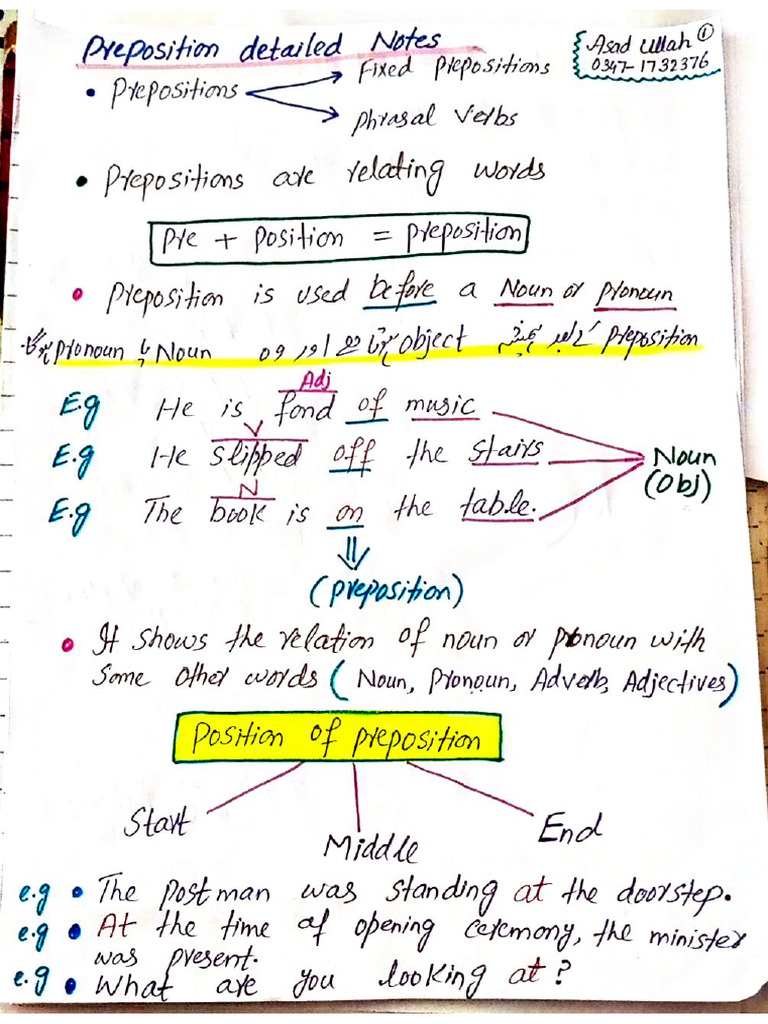 Preposition detailed Notes
Asad Ullah ①
0347-1732376
• Prepositions
Fixed Prepositions
Phrasal Verbs
• Prepositions are relating words
Pre + Position = Preposition
• Preposition is used before a Noun or Pronoun
Preposition کے بعد ہمیشہ object آتا ہے اور وہ Noun یا Pronoun ہوگا۔
Adj
E.g He is fond of music
V
E.g He slipped off the stairs
Noun
(Obj)
N
E.g The book is on the table.
(Preposition)
• It shows the relation of noun or pronoun with
some other words (Noun, Pronoun, Adverb, Adjectives)
Position of preposition
Start
Middle
End
e.g • The postman was standing at the doorstep.
e.g • At the time of opening ceremony, the minister
was present.
e.g • What are you looking at?